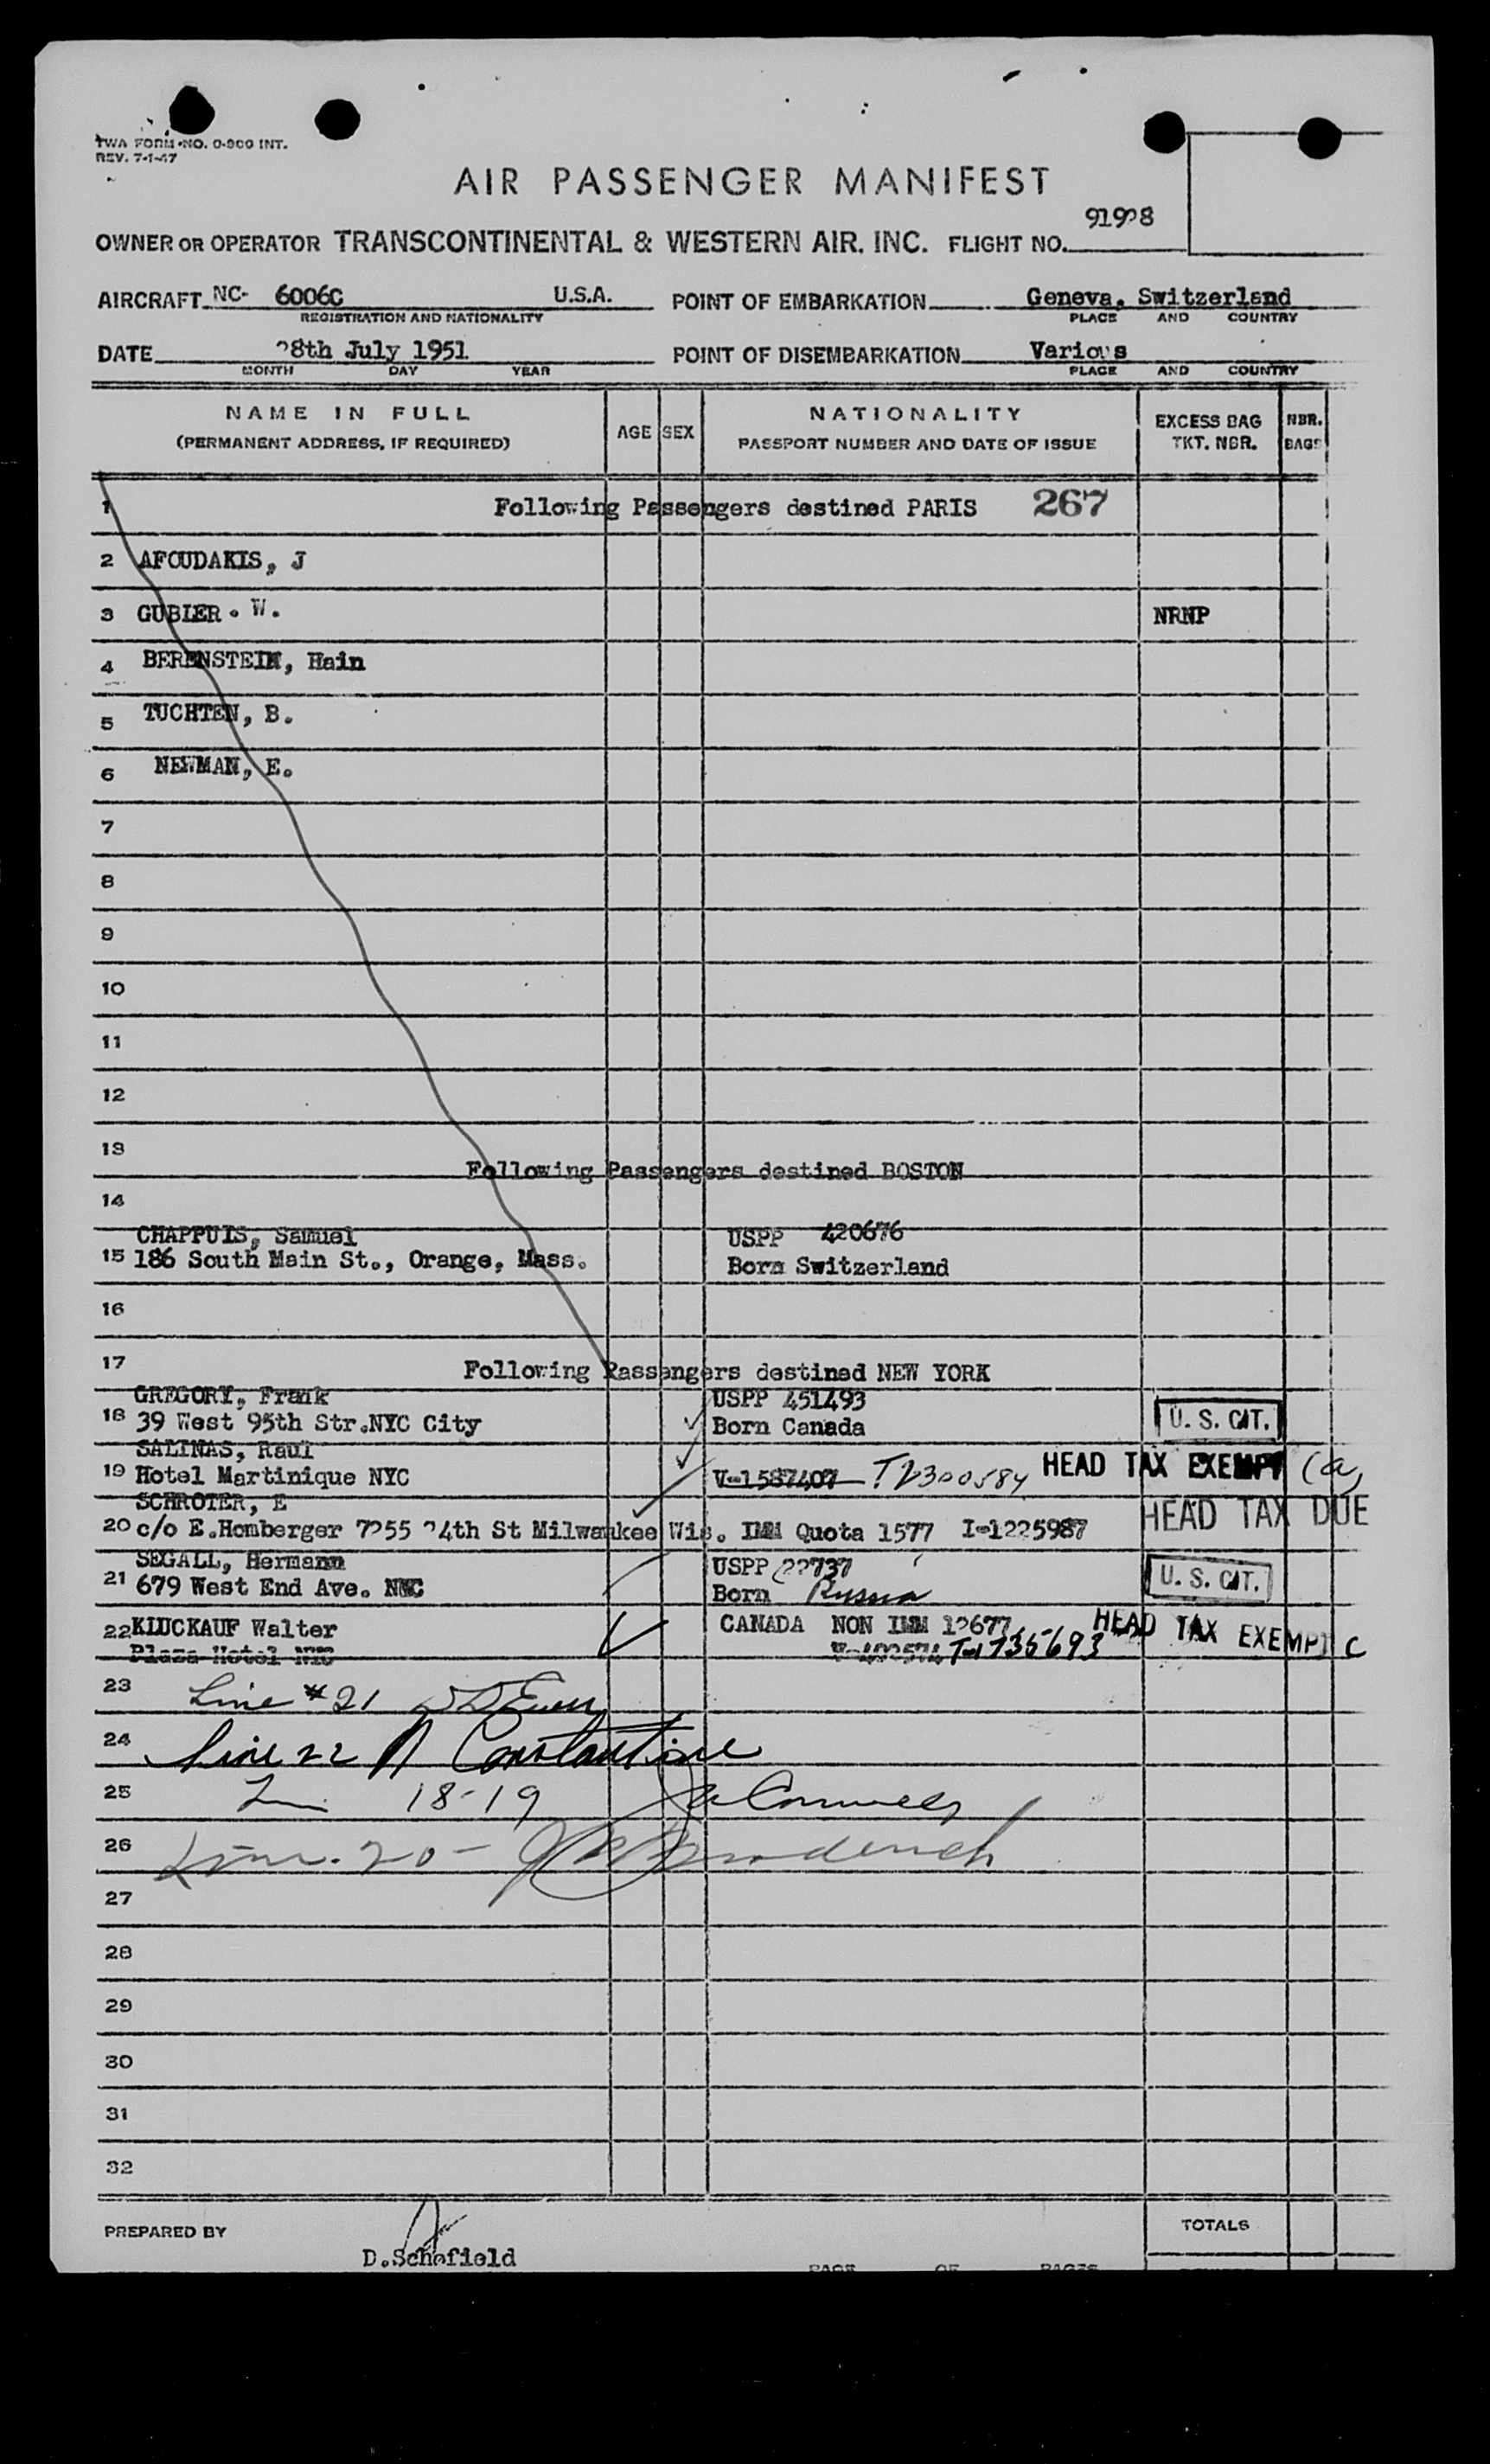 TWA FORM NO. 0-900 INT.
REV. 7-1-47
AIR PASSENGER MANIFEST
OWNER OR OPERATOR TRANSCONTINENTAL & WESTERN AIR, INC. FLIGHT NO. 91928
AIRCRAFT NC- 6006C U.S.A. POINT OF EMBARKATION Geneva, Switzerland
REGISTRATION AND NATIONALITY PLACE AND COUNTRY
DATE 28th July 1951 POINT OF DISEMBARKATION Various
MONTH DAY YEAR PLACE AND COUNTRY
NAME IN FULL
(PERMANENT ADDRESS, IF REQUIRED)
AGE SEX
NATIONALITY
PASSPORT NUMBER AND DATE OF ISSUE
EXCESS BAG
TKT. NBR.
NBR.
BAGS
1 Following Passengers destined PARIS 267
2 AFOUDAKIS, J
3 GUBLER. W. NRNP
4 BERENSTEIN, Hain
5 TUCHTEN, B.
6 NEWMAN, E.
7
8
9
10
11
12
13
Following Passengers destined BOSTON
14
CHAPPUIS, Samuel USPP 420676
15 186 South Main St., Orange, Mass. Born Switzerland
16
17 Following Passengers destined NEW YORK
GREGORY, Frank USPP 451493
18 39 West 95th Str.NYC City Born Canada U. S. CIT.
SALINAS, Raul
19 Hotel Martinique NYC V-1587407 T2300584 HEAD TAX EXEMPT (a)
SCHROTER, E
20 c/o E.Homberger 7255 24th St Milwaukee Wis. IMM Quota 1577 I-1225987 HEAD TAX DUE
SEGALL, Hermann USPP 22737
21 679 West End Ave. NYC Born Russia U. S. CIT.
22 KLUCKAUF Walter CANADA NON IMM 12677 HEAD TAX EXEMPT C
Plaza Hotel NYC T-1735693
23 Line #21
24 Line 22 N Constantine
25 18-19
26 Line 20-
27
28
29
30
31
32
PREPARED BY
D.Schofield
TOTALS
PAGE OF PAGES